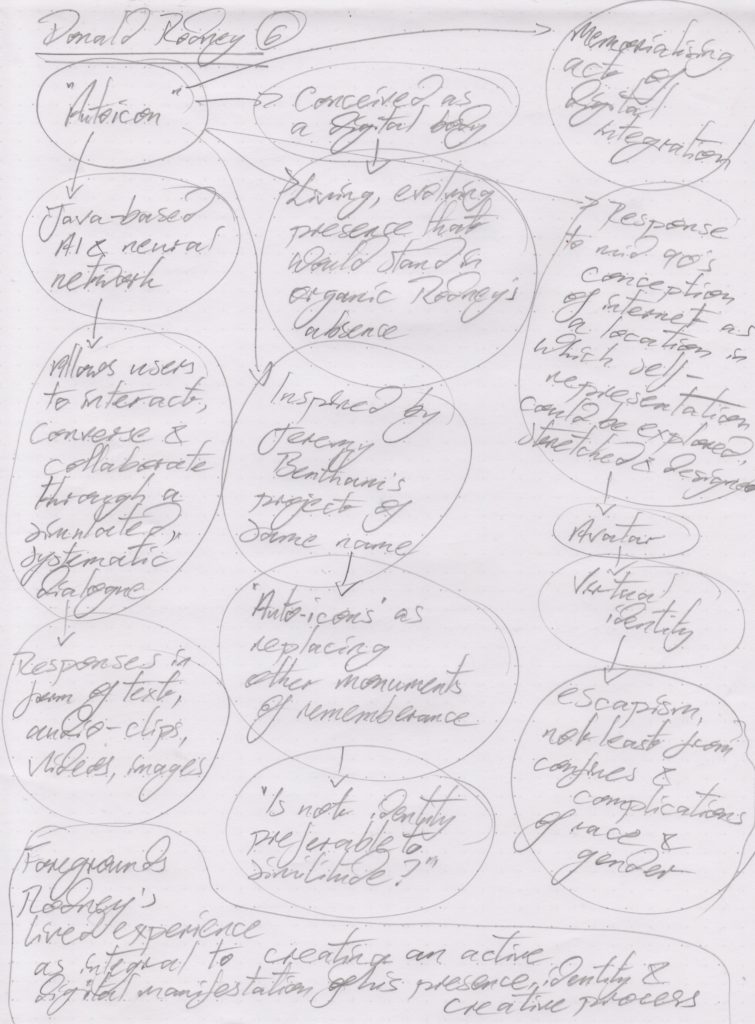 Donald Rodney 6
"Autoicon"
Java-based
AI & neural
network
Allows users
to interact,
converse &
collaborate
through a
simulated,
systematic
dialogue
Responses in
form of text,
audio-clips,
videos, images
Conceived as
a digital body
Living, evolving
presence that
would stand in
organic Rodney's
absence
Inspired by
Jeremy
Bentham's
project of
same name
'Auto-icons' as
replacing
other monuments
of rememberance
"Is not identity
preferable to
similitude?"
Memorialising
act of
digital
integration
Response
to mid 90's
conception
of internet as
a location in
which self-
representation
could be explored,
stretched & designed
Avatar
Virtual
identity
escapism,
not least from
confines &
complications
of race &
gender
Foregrounds
Rodney's
lived experience
as integral to creating an active
digital manifestation of his presence, identity &
creative process